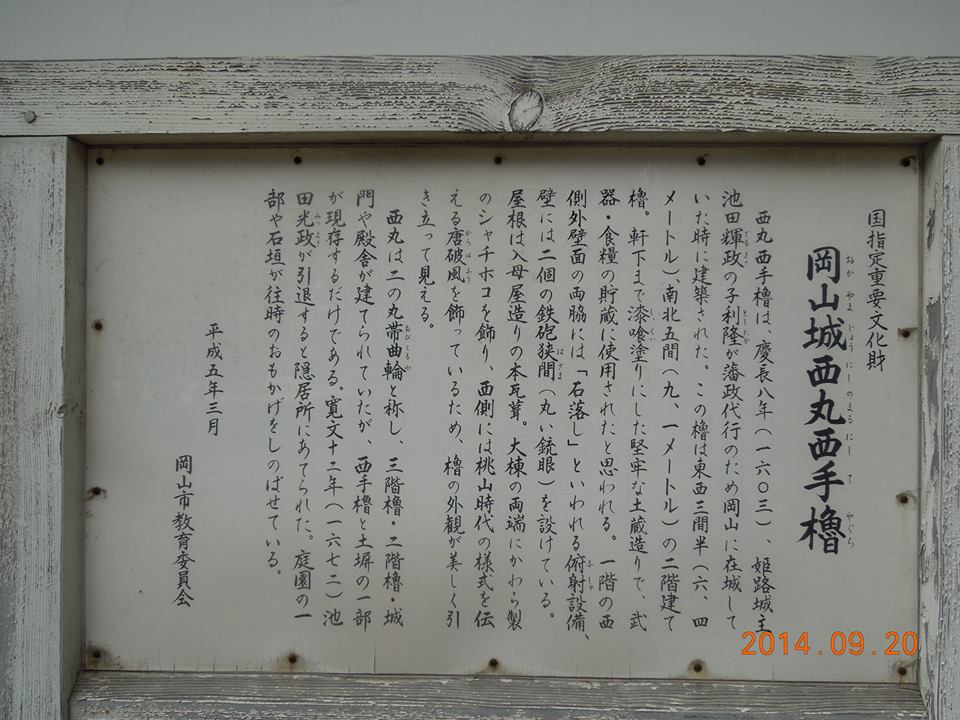 国指定重要文化財
岡山城西丸西手櫓
おかやまじょうにしのまるにしてやぐら
西丸西手櫓は、慶長八年(一六〇三)、姫路城主
池田輝政の子利隆が藩政代行のため岡山に在城して
てるまさ としたか
いた時に建築された。この櫓は東西三間半(六、四
メートル)、南北五間(九、一メートル)の二階建て
櫓。軒下まで漆喰塗りにした堅牢な土蔵造りで、武
しっくい
器・食糧の貯蔵に使用されたと思われる。一階の西
側外壁面の両脇には「石落し」といわれる俯射設備、
ふしゃ
壁には二個の鉄砲狭間(丸い銃眼)を設けている。
はざま
屋根は入母屋造りの本瓦葺。大棟の両端にかわら製
のシャチホコを飾り、西側には桃山時代の様式を伝
える唐破風を飾っているため、櫓の外観が美しく引
からはふう
き立って見える。
西丸は二の丸帯曲輪と称し、三階櫓・二階櫓・城
おびくるわ
門や殿舎が建てられていたが、西手櫓と土塀の一部
が現存するだけである。寛文十二年(一六七二)池
田光政が引退すると隠居所にあてられた。庭園の一
みつまさ
部や石垣が往時のおもかげをしのばせている。
平成五年三月
岡山市教育委員会
2014.09.20